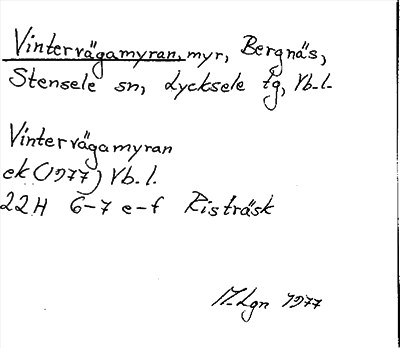 Vintervägamyran, myr, Bergnäs,
Stensele sn, Lycksele tg, Vb.l.
Vintervägamyran
ek (1977) Vb.l.
22H 6-7 e-f Risträsk
M.Lgn 1977